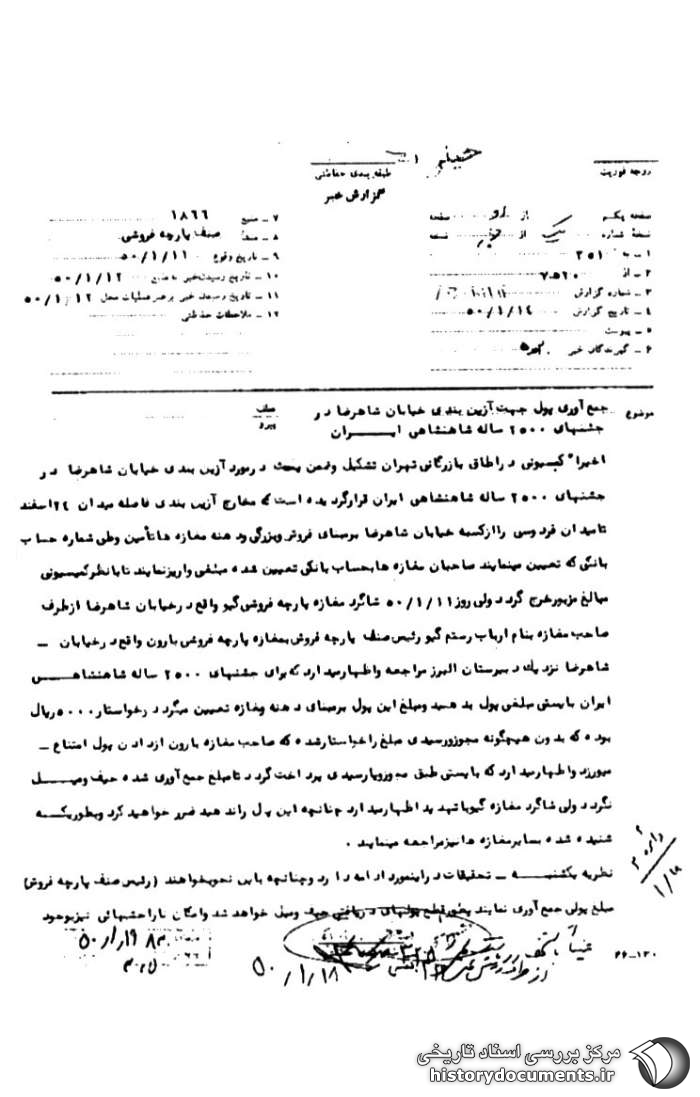 طبقه بندی حفاظتی
درجه فوریت
گزارش خبر
صفحه یکم از صفحه
نسخهٔ شماره یک از نسخه
۱ ـ به ۲۵۱
۲ ـ از ۷۰۵۲۰
۳ ـ شماره گزارش
۴ ـ تاریخ گزارش ۵۰/۱/۱۴
۵ ـ پیوست
۶ ـ گیرندگان خبر
۷ ـ منبع ۱۸۶۶
۸ ـ منشأ صنف پارچه فروشی
۹ ـ تاریخ وقوع ۵۰/۱/۱۱
۱۰ ـ تاریخ رسیدن خبر به منبع ۵۰/۱/۱۲
۱۱ ـ تاریخ رسیدن خبر برهبر عملیات محل ۵۰/۱/۱۲
۱۲ ـ ملاحظات حفاظتی
موضوع جمع آوری پول جهت آزین بندی خیابان شاهرضا در
جشنهای ۲۵۰۰ ساله شاهنشاهی ایران
عطف
پیرو
اخیرا" کمیسیونی در اطاق بازرگانی تهران تشکیل وضمن بحث در مورد آزین بندی خیابان شاهرضا در
جشنهای ۲۵۰۰ ساله شاهنشاهی ایران قرار گردیده است که مخارج آزین بندی فاصله میدان ۲۴ اسفند
تا میدان فردوسی را از کسبه خیابان شاهرضا برمبنای فروش وبزرگی ود هنه مغازه ها تأمین وطی شماره حساب
بانکی که تعیین مینمایند صاحبان مغازه ها بحساب بانکی تعیین شده مبلغی واریز نمایند تا بانظر کمیسیونی
مبالغ مزبور خرج گردد ولی روز ۵۰/۱/۱۱ شاگرد مغازه پارچه فروشی گیو واقع در خیابان شاهرضا از طرف
صاحب مغازه بنام ارباب رستم گیو رئیس صنف پارچه فروش بمغازه پارچه فروشی بارون واقع در خیابان ـ
شاهرضا نزدیک دبیرستان البرز مراجعه واظهار میدارد که برای جشنهای ۲۵۰۰ ساله شاهنشاهی
ایران بایستی مبلغی پول بدهید ومبلغ این پول برمبنای دهنه ومغازه تعیین میگردد درخواستار ۵۰۰۰ ریال
بوده که بدون هیچگونه مجوز ورسیدی مبلغ را خواستار شده که صاحب مغازه بارون از دادن پول امتناع ـ
میورزد واظهار میدارد که بایستی طبق مجوز ویا رسیدی پرداخت گردد تا مبلغ جمع آوری شده حیف ومیل
نگردد ولی شاگرد مغازه گیو با تهدید اظهار میدارد چنانچه این پول را ندهید ضرر خواهید کرد وبطوریکه
شنیده شده بسایر مغازه ها نیز مراجعه مینمایند .
نظریه یکشنبه ـ تحقیقات در اینمورد ادامه دارد وچنانچه باین نحو بخواهند (رئیس صنف پارچه فروش)
مبلغ پولی جمع آوری نمایند بطور قطع پولهای دریافتی حیف ومیل خواهد شد وامکان ناراحتیهائی نیز بوجود
دائره ۲
۵۰/۱/۱۹
۵۰/۱/۱۸
۶۶-۱۳۰
مرکز بررسی اسناد تاریخی
historydocuments.ir